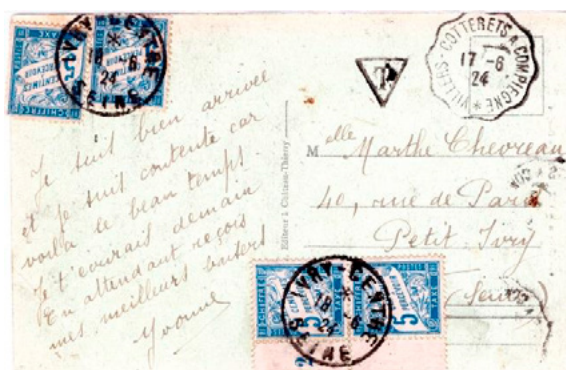 IVRY-CENTRE
*
18 -6
24
SEINE
CHIFFRE TAXE
A PERCEVOIR
5
CENTIMES
T
VILLERS-COTTERETS A COMPIEGNE *
17 -6
24
Je suis bien arrivée
et je suis contente car
voilà le beau temps
Je t'écrirais demain
En attendant reçois
mes meilleurs baisers
Yvonne
Editeur à Château-Thierry
Melle Marthe Chevreau
40, rue de Paris
Petit Ivry
(Seine)
IVRY-CENTRE
*
18 -6
24
SEINE
A PERCEVOIR
5